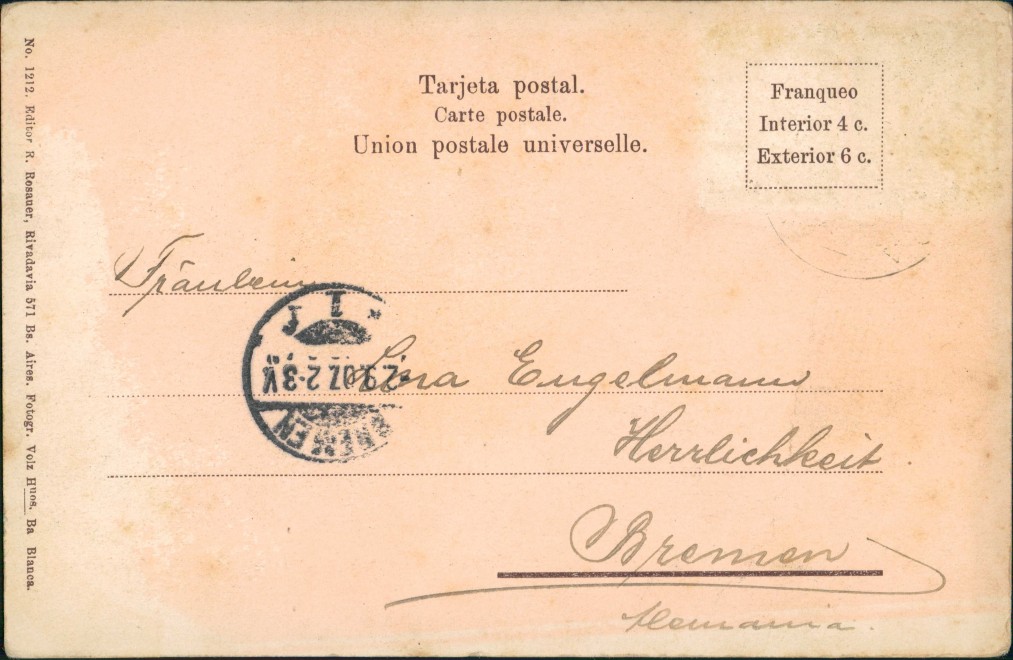 Tarjeta postal.
Carte postale.
Union postale universelle.
Franqueo
Interior 4 c.
Exterior 6 c.
Fräulein
Lina Engelmann
Herrlichkeit
Bremen
Alemania.
BREMEN
2.9.07.2-3V
1
No. 1212. Editor R. Rosauer, Rivadavia 571 Bs. Aires. Fotogr. Volz Hnos. Ba Blanca.